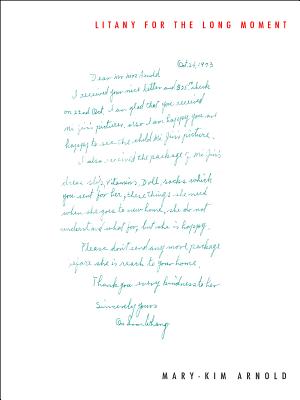 LITANY FOR THE LONG MOMENT
Oct. 26, 1973
Dear Mr. Mrs. Arnold
I received your nice letter and $25.00 check
on 22nd Oct. I am glad that you received
Mi Jin's pictures, also I am happy you are
happy to see the child Mi Jin's picture.
I also received the package of Mi Jin's
dress, slip, vitamins, Doll, socks which
you sent for her, these things she need
when she goes to new home, she do not
understand what for, but she is happy.
Please don't send any more package
before she is reach to your home.
Thank you every kindness to her
Sincerely yours
MARY-KIM ARNOLD